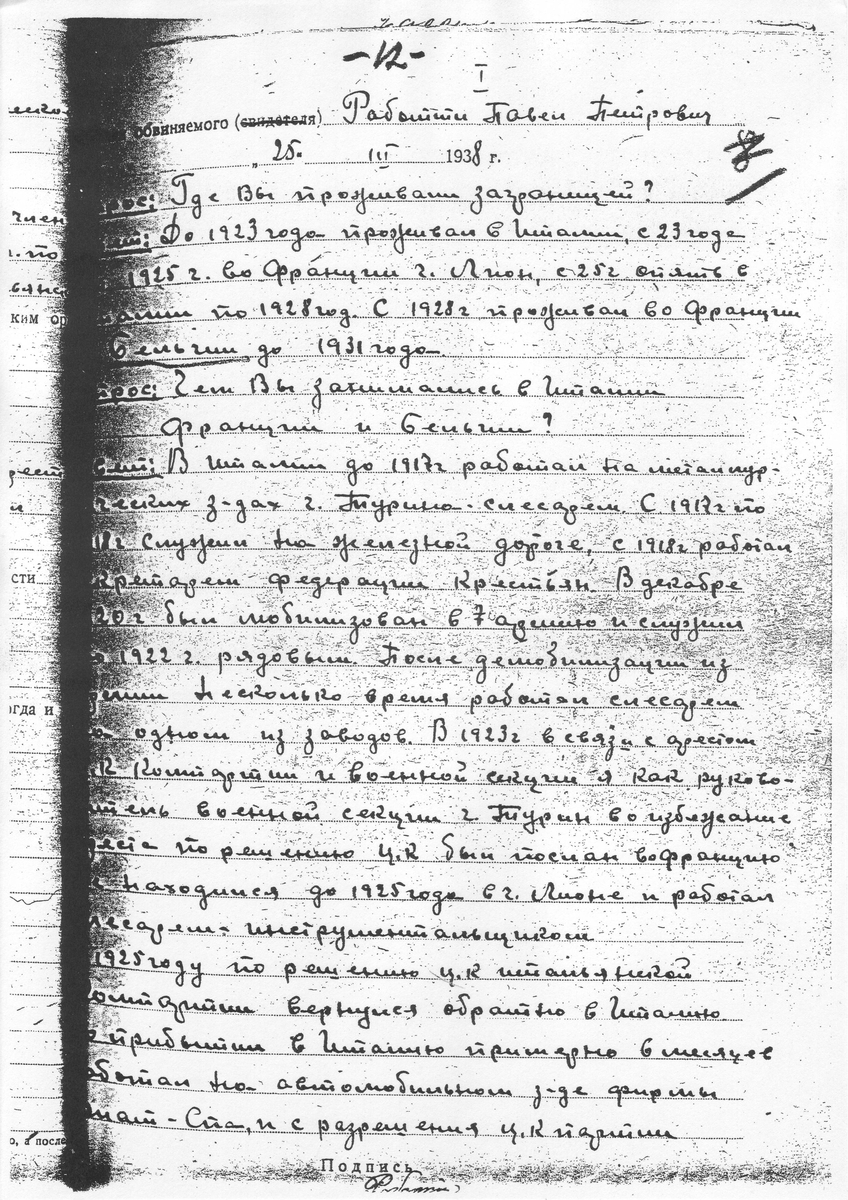 -12-
I
обвиняемого (свидетеля) Работти Павел Петрович
„ 25. III 1938 г.
рос: Где Вы проживали заграницей?
ет: До 1923 года проживал в Италии, с 23 года
1925 г. во Франции г. Лион, с 25г опять в
алии по 1928 год. С 1928г проживал во Франции
Бельгии до 1931 года
прос: Чем Вы занимались в Италии
Франции и Бельгии?
вет: В Италии до 1917г работал на металлур-
ических з-дах г. Турина-слесарем. С 1917г по
18г служил на железной дороге, с 1918г работал
кретарем федерации Крестьян. В декабре
20г был мобилизован в 7 армию и служил
о 1922 г. рядовым. После демобилизации из
рмии несколько время работал слесарем
а одном из заводов. В 1923г в связи с арестом
ЦК Компартии и военной секции я как руково-
итель военной секции г. Турин во избежание
реста по решению Ц.К был послан во Францию
е находился до 1925 года в г. Лионе и работал
лесарем-инструментальщиком
1925 году по решению Ц.К итальянской
компартии вернулся обратно в Италию.
о прибытии в Италию примерно 6 месяцев
работал на автомобильном з-де фирмы
иат-Спа, и с разрешения Ц.К партии
Подпись
член
. по
ким ор
рест
сти
огда и
о, а после